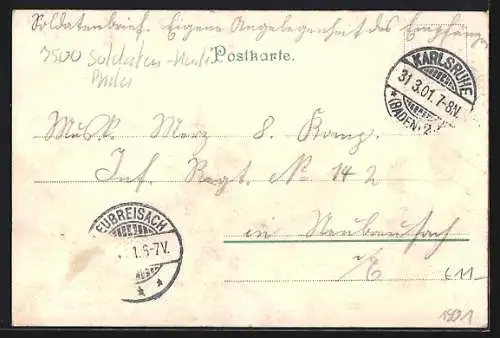 Soldatenbrief. Eigene Angelegenheit des Empfängers
3500 Soldaten
Postkarte.
KARLSRUHE
31.3.01.7-8N.
* (BADEN) 2.
Musk. Merz 8. Komp.
Inf. Regt. No 142
in Neubreisach
i/E
EUBREISACH
1.6-7V.
* *
€11-
1901